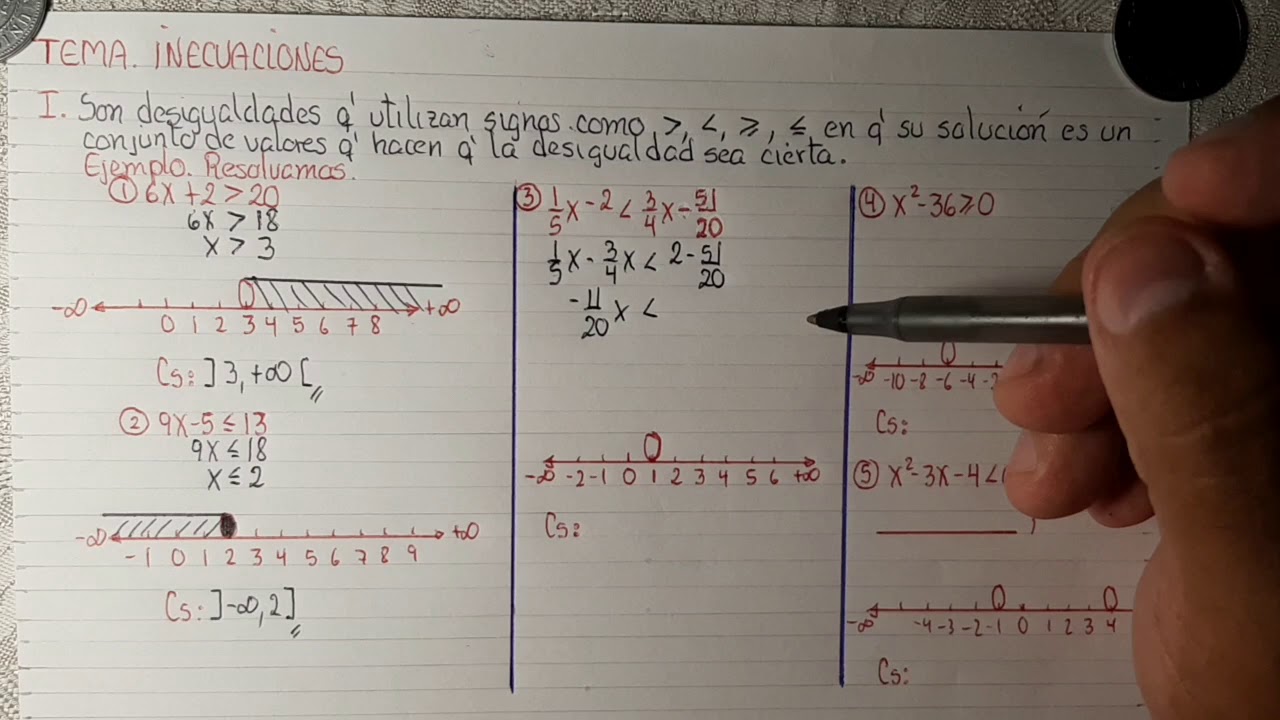 TEMA. INECUACIONES
I. Son desigualdades q' utilizan signos como >, <, ≥, ≤, en q' su solución es un
conjunto de valores q' hacen q' la desigualdad sea cierta.
Ejemplo. Resolvamos.
① 6x + 2 > 20
6x > 18
x > 3
-∞ 0 1 2 3 4 5 6 7 8 +∞
Cs: ]3, +∞[
② 9x - 5 ≤ 13
9x ≤ 18
x ≤ 2
-∞ -1 0 1 2 3 4 5 6 7 8 9 +∞
Cs: ]-∞, 2]
③ 1/5 x - 2 < 3/4 x - 51/20
1/5 x - 3/4 x < 2 - 51/20
-11/20 x <
-∞ -2 -1 0 1 2 3 4 5 6 +∞
Cs:
④ x² - 36 ≥ 0
-∞ -10 -8 -6 -4 -2
Cs:
⑤ x² - 3x - 4 <
-∞ -4 -3 -2 -1 0 1 2 3 4
Cs: